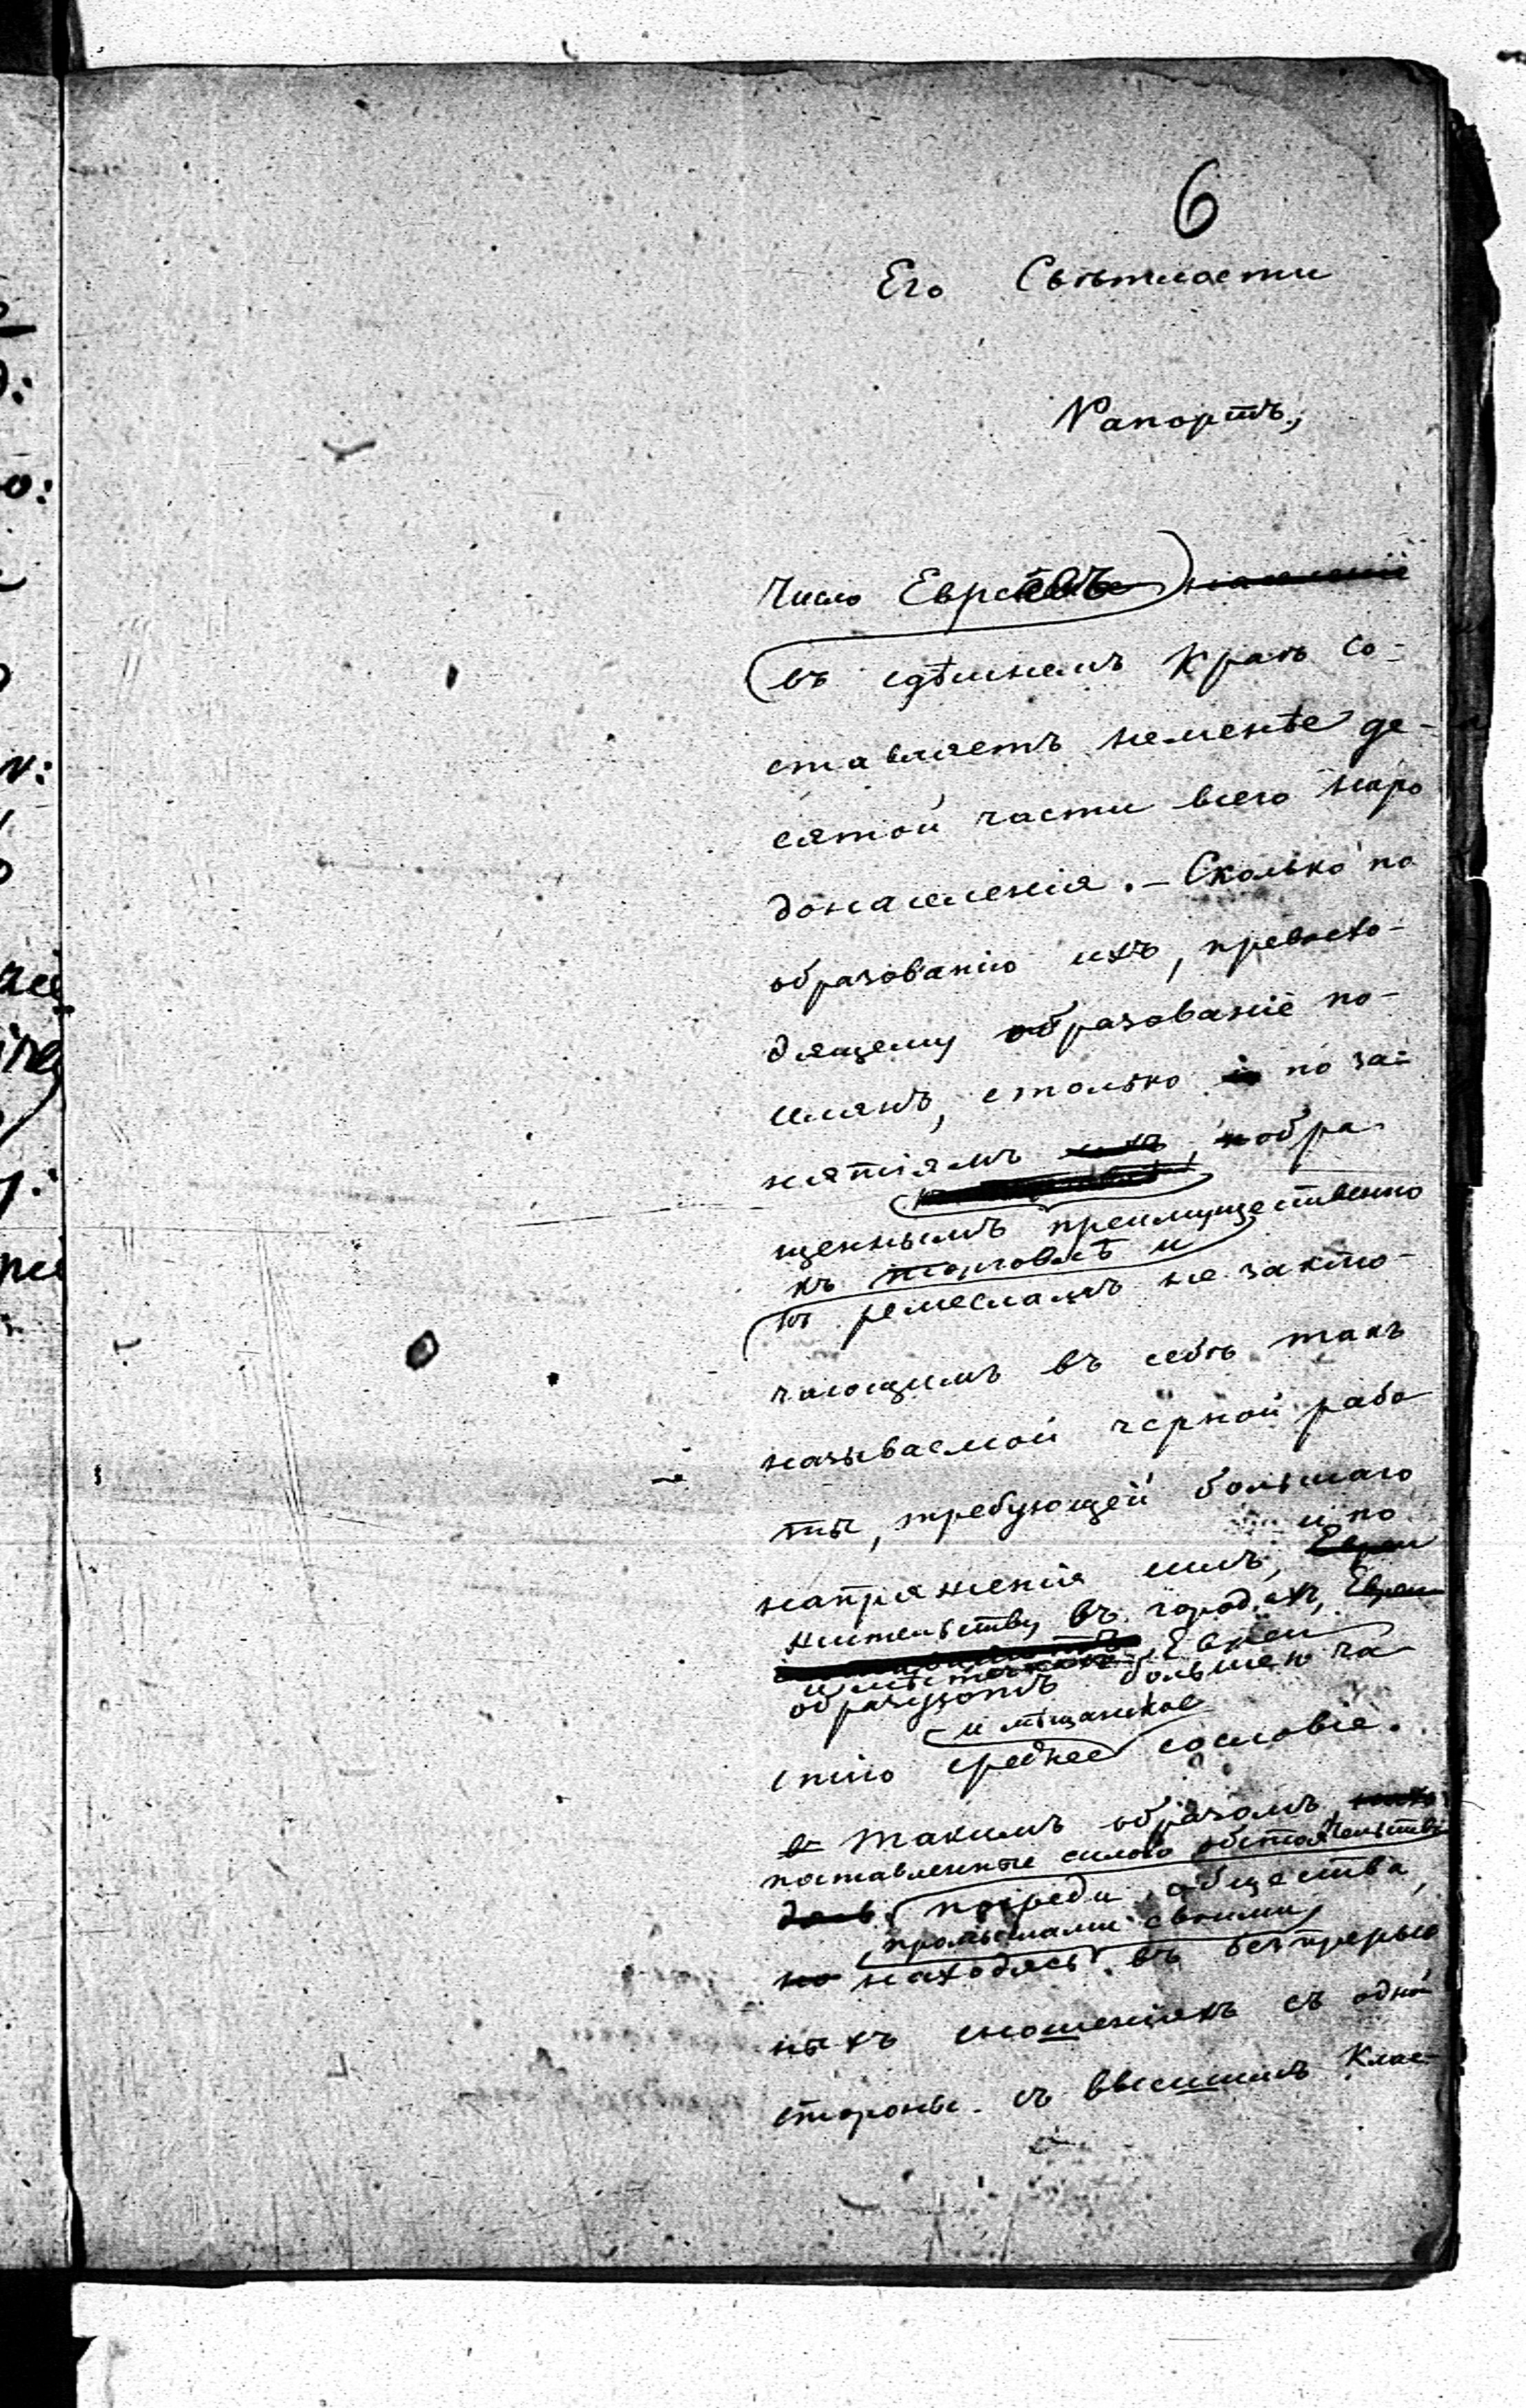 6
Его Свѣтлости
Рапортъ,
Число Евреевъ населеніе
въ здѣшнемъ Краѣ со-
ставляетъ неменѣе де-
сятой части всего наро
донаселенія. – Сколько по
образованію ихъ, превосхо-
дящему образованіе по-
селянъ, столько и по за-
нятіямъ ихъ, обра-
щеннымъ преимущественно
къ торговлѣ и
къ ремесламъ не заклю-
чающимъ въ себѣ такъ
называемой черной рабо
ты, требующей большаго
и по
напряженія силъ, Евреи
жительству въ городахъ, Евреи
и мѣстечкахъ, Евреи
образуютъ большею ча
и мѣщанское
стію среднее сословіе.
в Такимъ образомъ,
поставленные силою обстоятельствъ
посреди общества,
промыслами своими
но находясь въ безпрерыв
ныхъ сношеніяхъ съ одной
стороны съ высшимъ Клас-